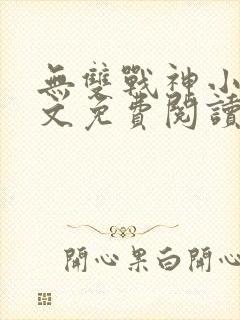 無雙戰神小
文免費閱讀
開心果白開心